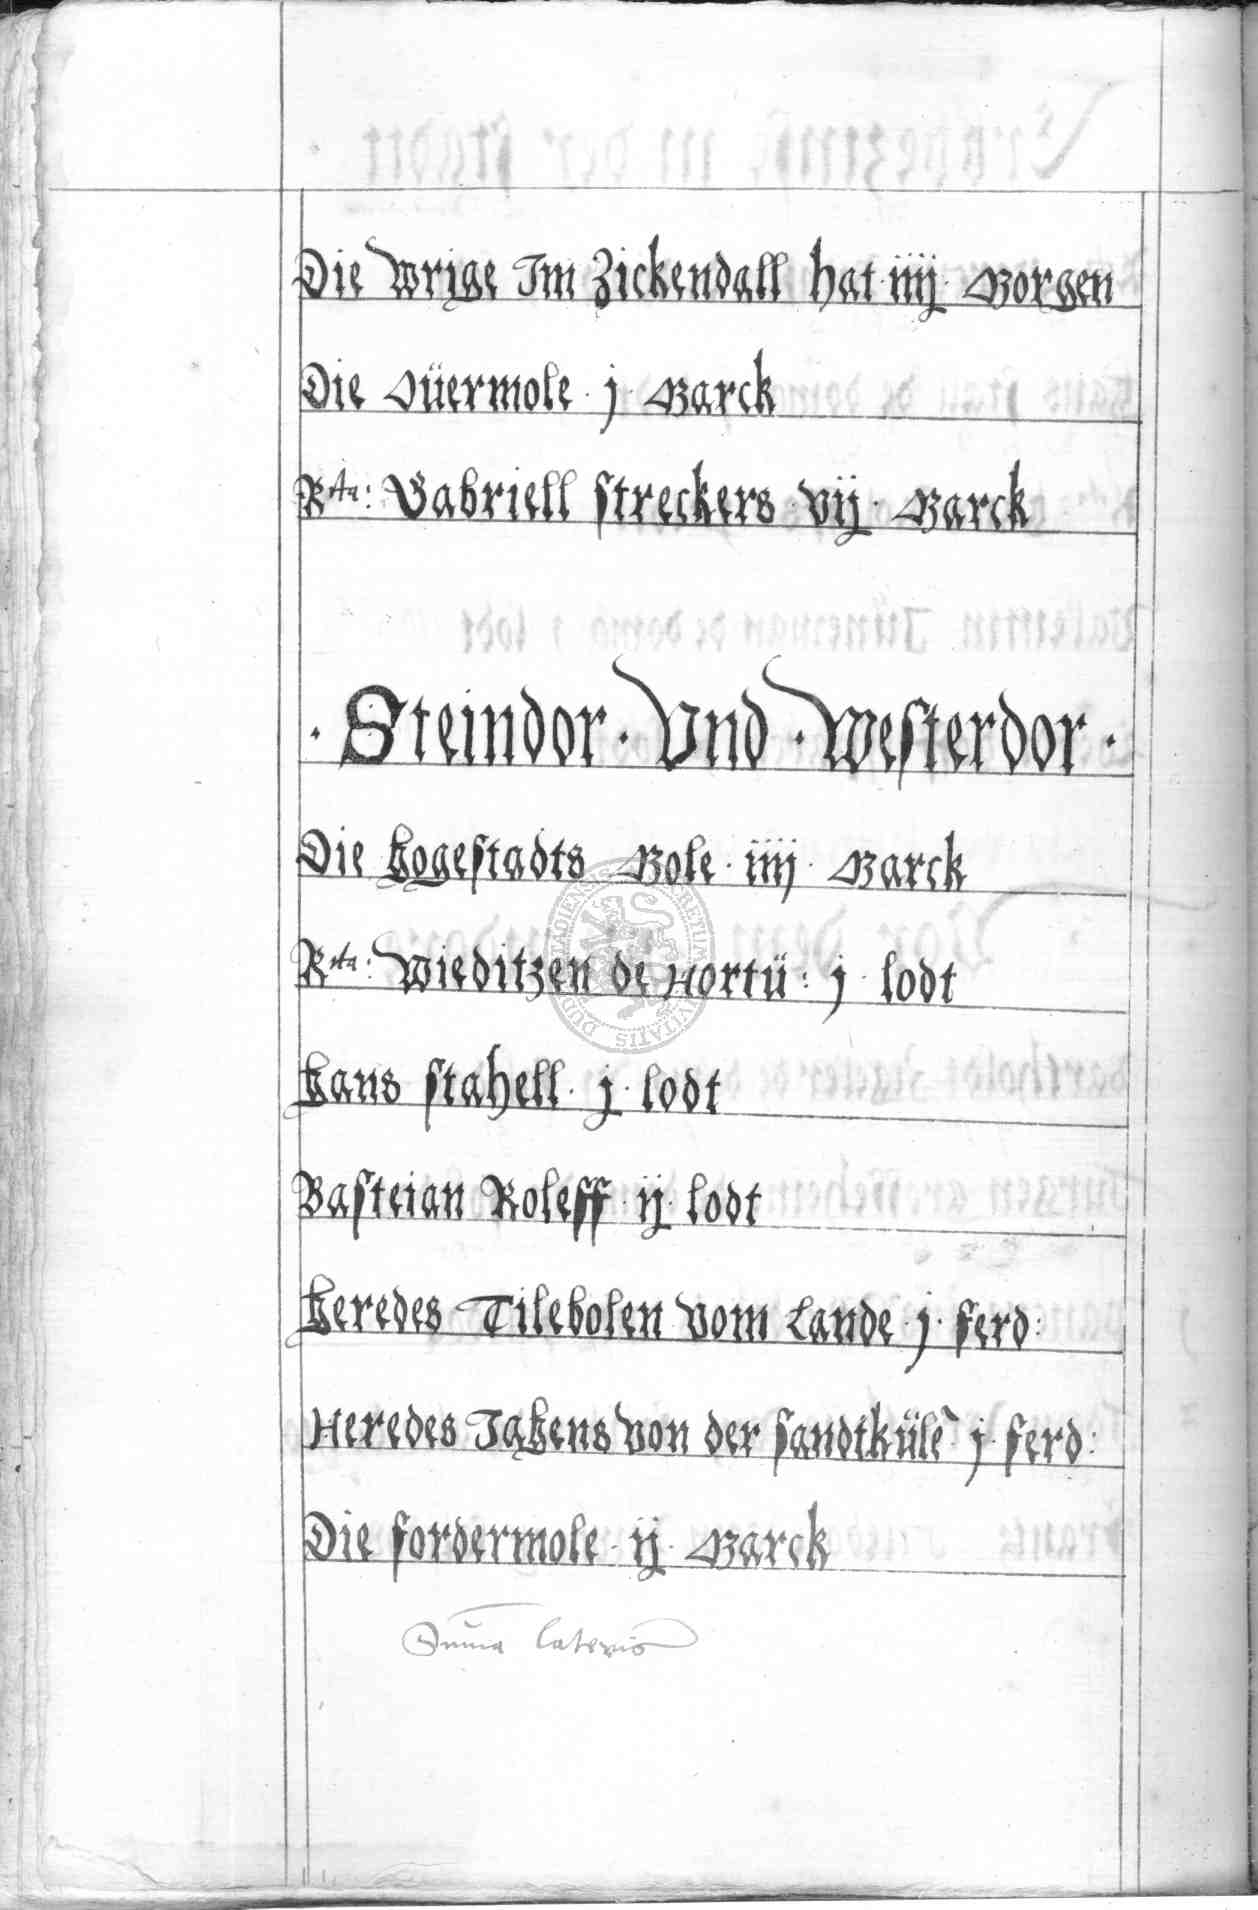 Die wrige Im Zickendall hat · iiij · Morgen
Die Aüermole · j · Marck
Rta: Gabriell streckers · vij · Marck
· Steindor · Vnd · Westerdor ·
Die Hogestadts Mole · iiij · Marck
Rta: Wieditzen de Hortü : j · lodt
Hans stahell · j · lodt
Basteian Roleff · ij · lodt
Heredes Tilebolen vom Lande · j · ferd :
Heredes Jahens von der sandtküle · j · ferd :
Die fordermole · ij · Marck
Suma lateris